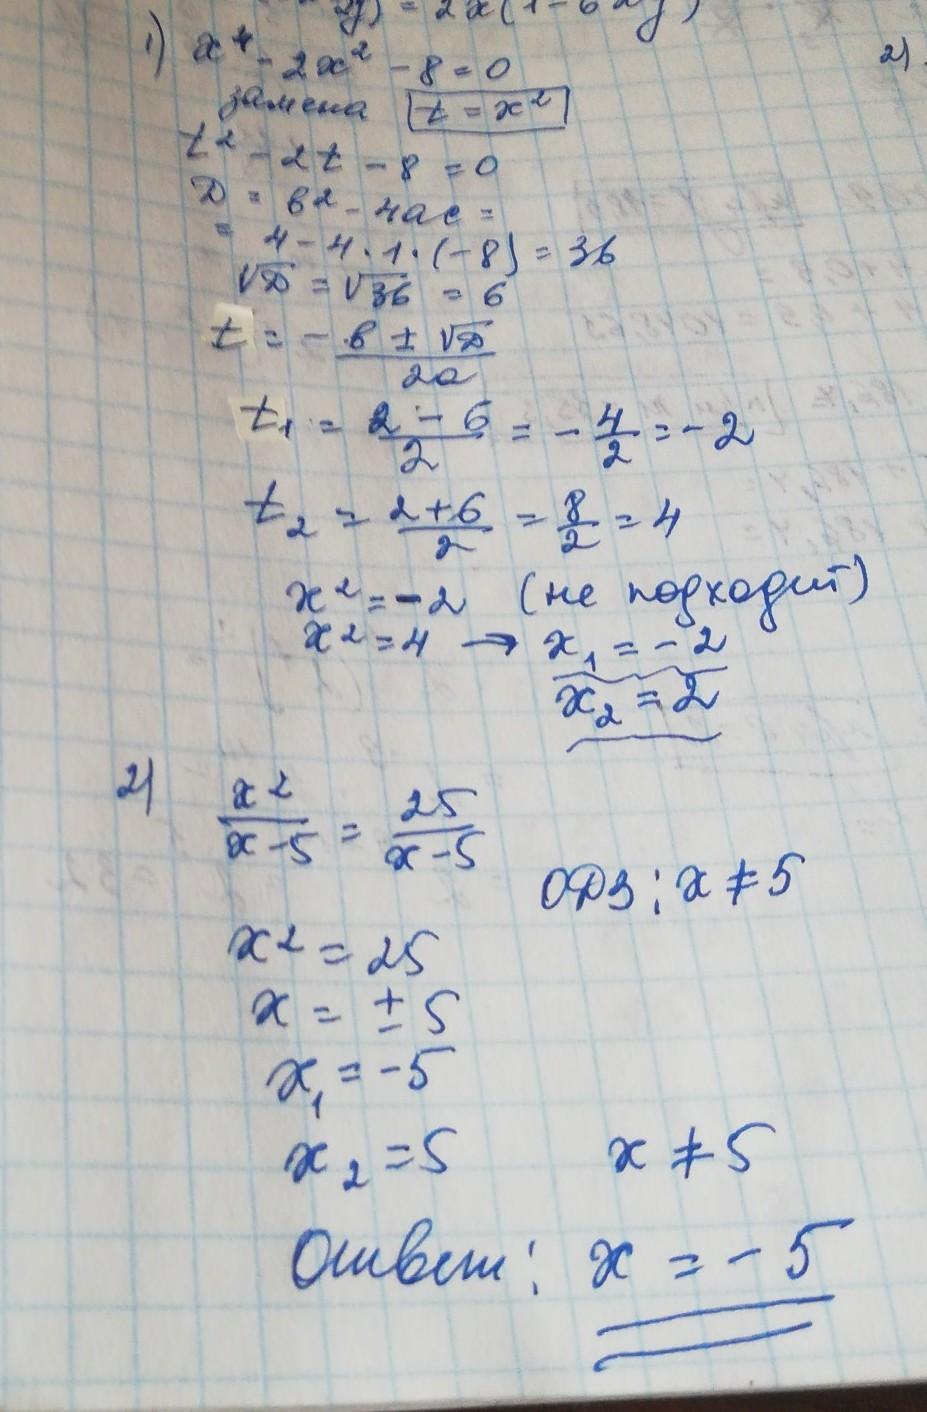 2y) = 2x(1-6
1) x⁴ - 2x² - 8 = 0
2)
замена t = x²
t² - 2t - 8 = 0
D = b² - 4ac =
= 4 - 4·1·(-8) = 36
√D = √36 = 6
t = -b ± √D / 2a
t₁ = 2-6 / 2 = -4/2 = -2
t₂ = 2+6 / 2 = 8/2 = 4
x² = -2 (не подходит)
x² = 4 → x₁ = -2
x₂ = 2
2) x² / x-5 = 25 / x-5
ОДЗ: x ≠ 5
x² = 25
x = ± 5
x₁ = -5
x₂ = 5 x ≠ 5
Ответ: x = -5